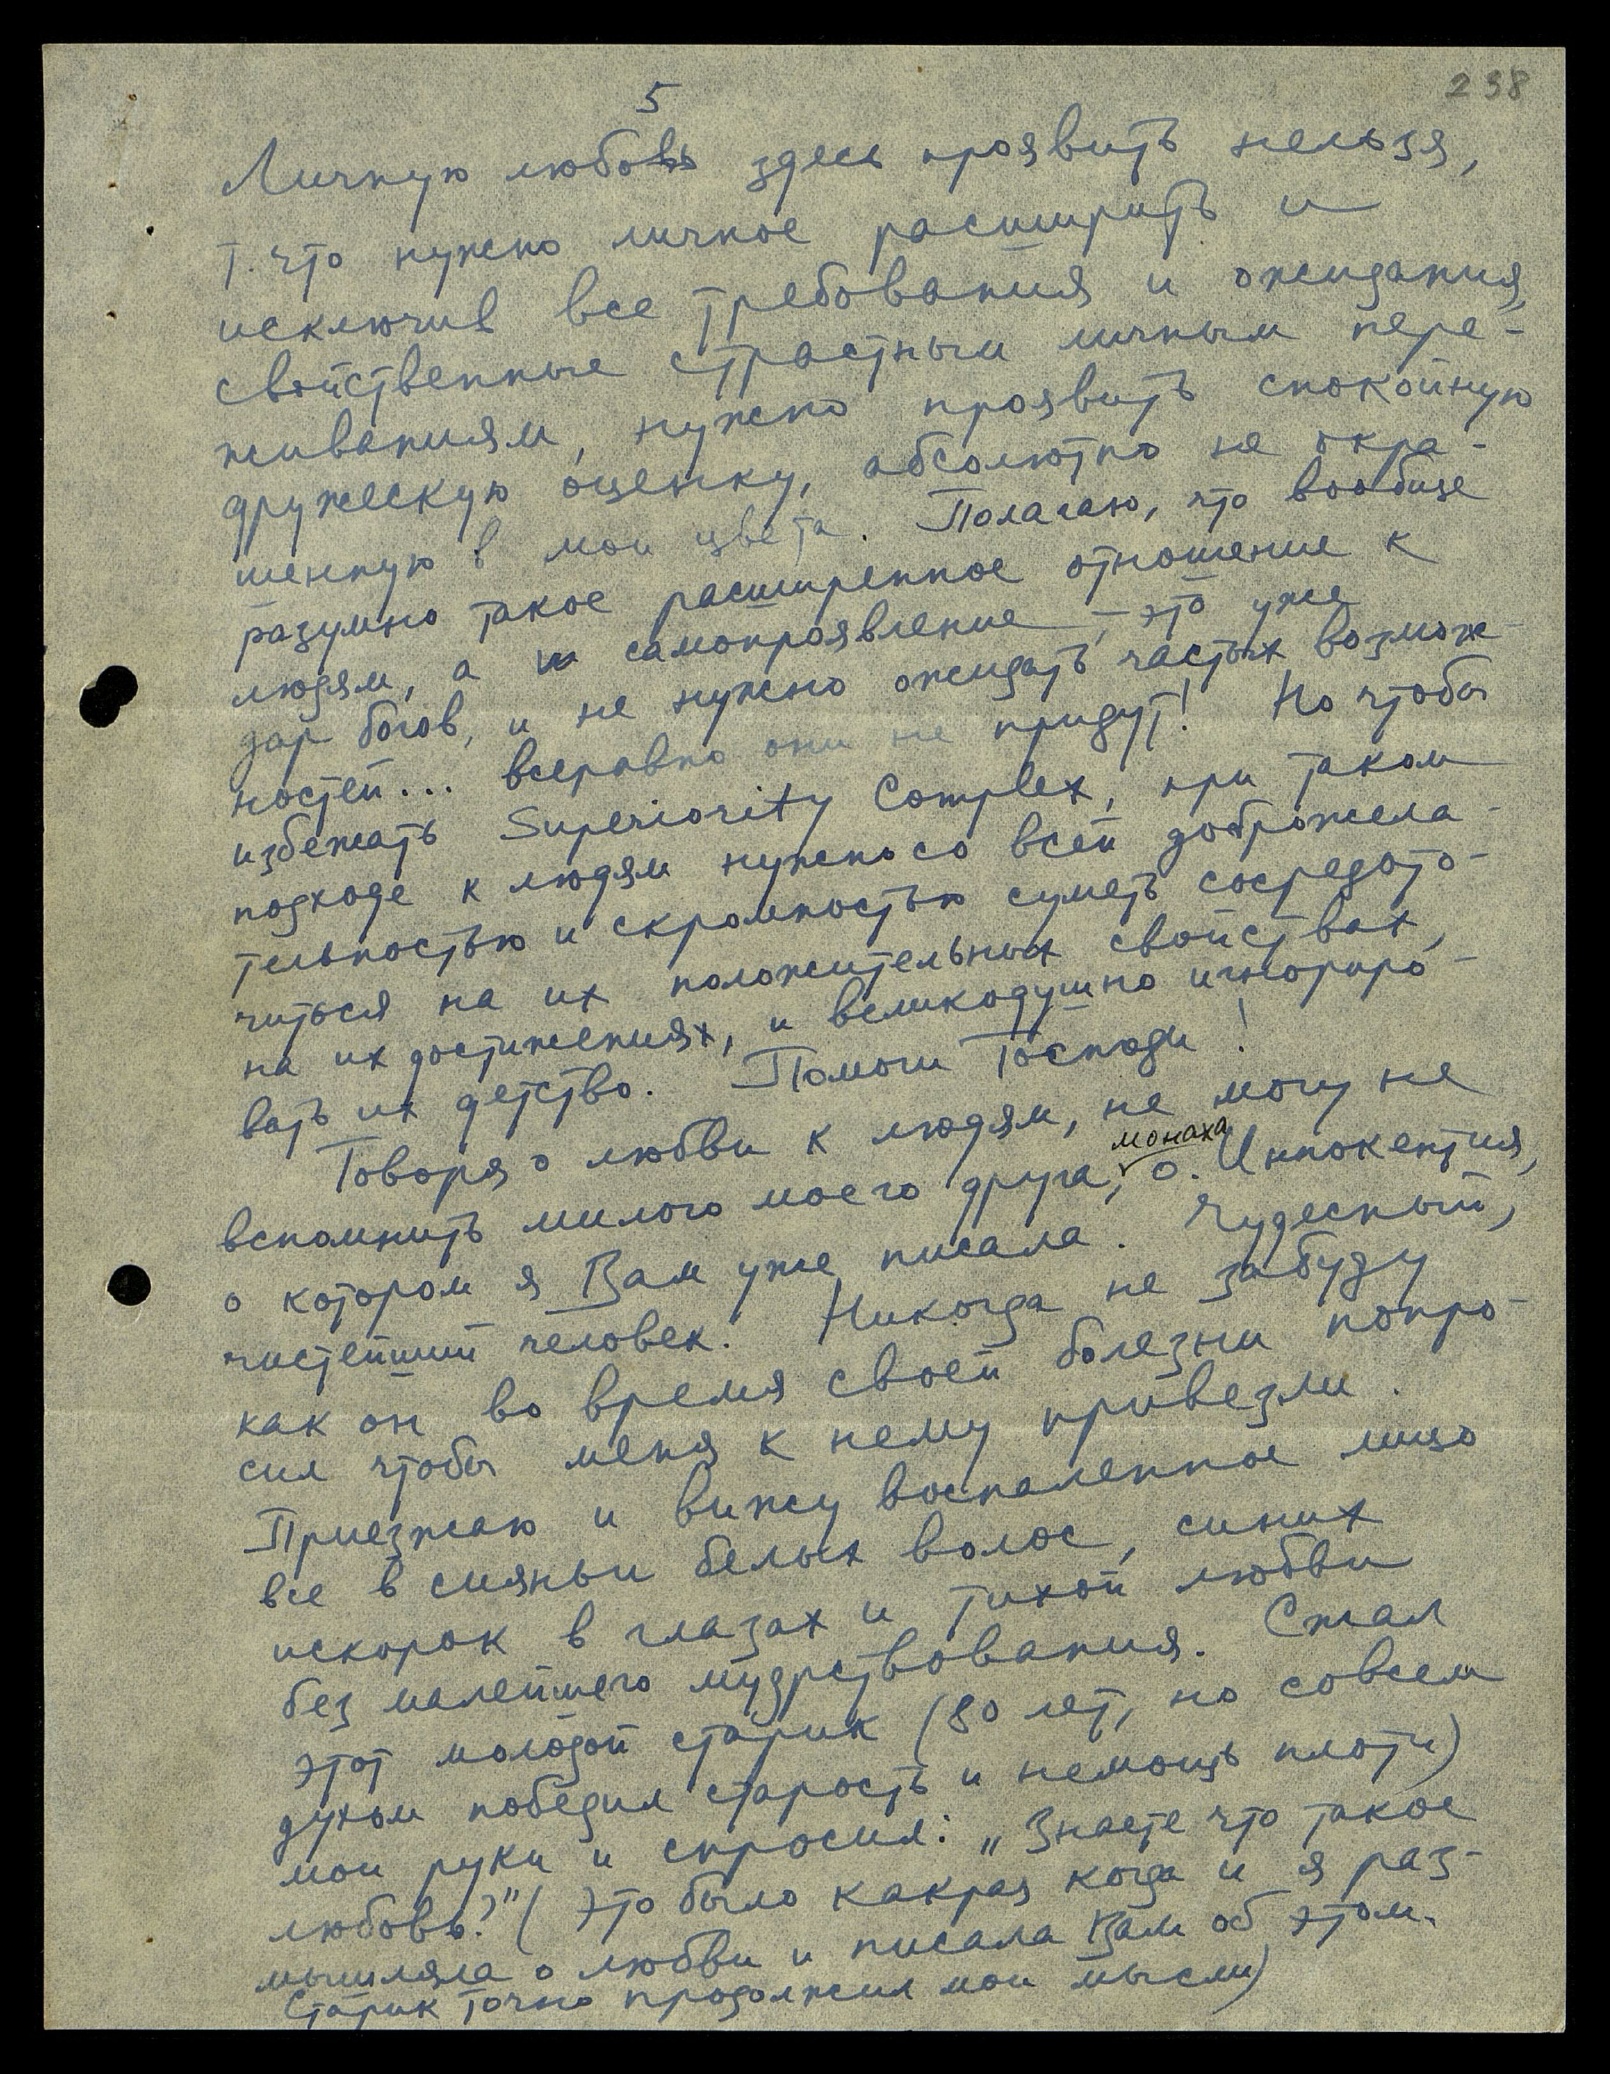 238
5
Личную любовь здесь проявить нельзя,
т. что нужно личное расширить и
исключив все требования и ожидания,
свойственные страстным личным пере-
живаниям, нужно проявить спокойную
дружескую оценку, абсолютно не окра-
шенную в мои цвета. Полагаю, что вообще
разумно такое расширенное отношение к
людям, а самопроявление — это уже
дар богов, и не нужно ожидать частых возмож-
ностей... всеравно они не придут! Но чтобы
избежать Superiority Complex, при таком
подходе к людям нужно со всей доброжела-
тельностью и скромностью суметь сосредото-
читься на их положительных свойствах,
на их достижениях, и великодушно игнориро-
вать их детство. Помоги Господи!
Говоря о любви к людям, не могу не
вспомнить милого моего друга, монаха о. Иннокентия,
о котором я Вам уже писала. Чудесный,
чистейший человек. Никогда не забуду
как он во время своей болезни попро-
сил чтобы меня к нему привезли.
Приезжаю и вижу воспаленное лицо
все в сияньи белых волос, синих
искорок в глазах и тихой любви
без малейшего мудрствования. Сжал
этот молодой старик (80 лет, но совсем
духом победил старость и немощь плоти)
мои руки и спросил: „Знаете что такое
любовь?" (Это было какраз когда и я раз-
мышляла о любви и писала Вам об этом.
Старик точно продолжил мои мысли)